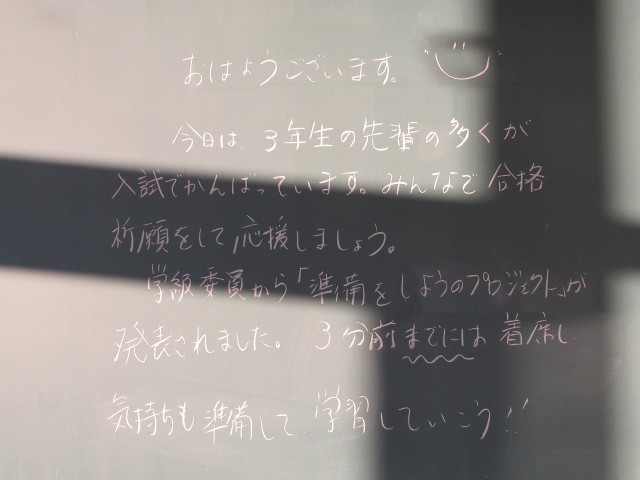 おはようございます。
今日は、3年生の先輩の多くが
入試でがんばっています。みんなで合格
祈願をして応援しましょう。
学級委員から「準備をしようのプロジェクト」が
発表されました。3分前までには着席し
気持ちも準備して、学習していこう!!